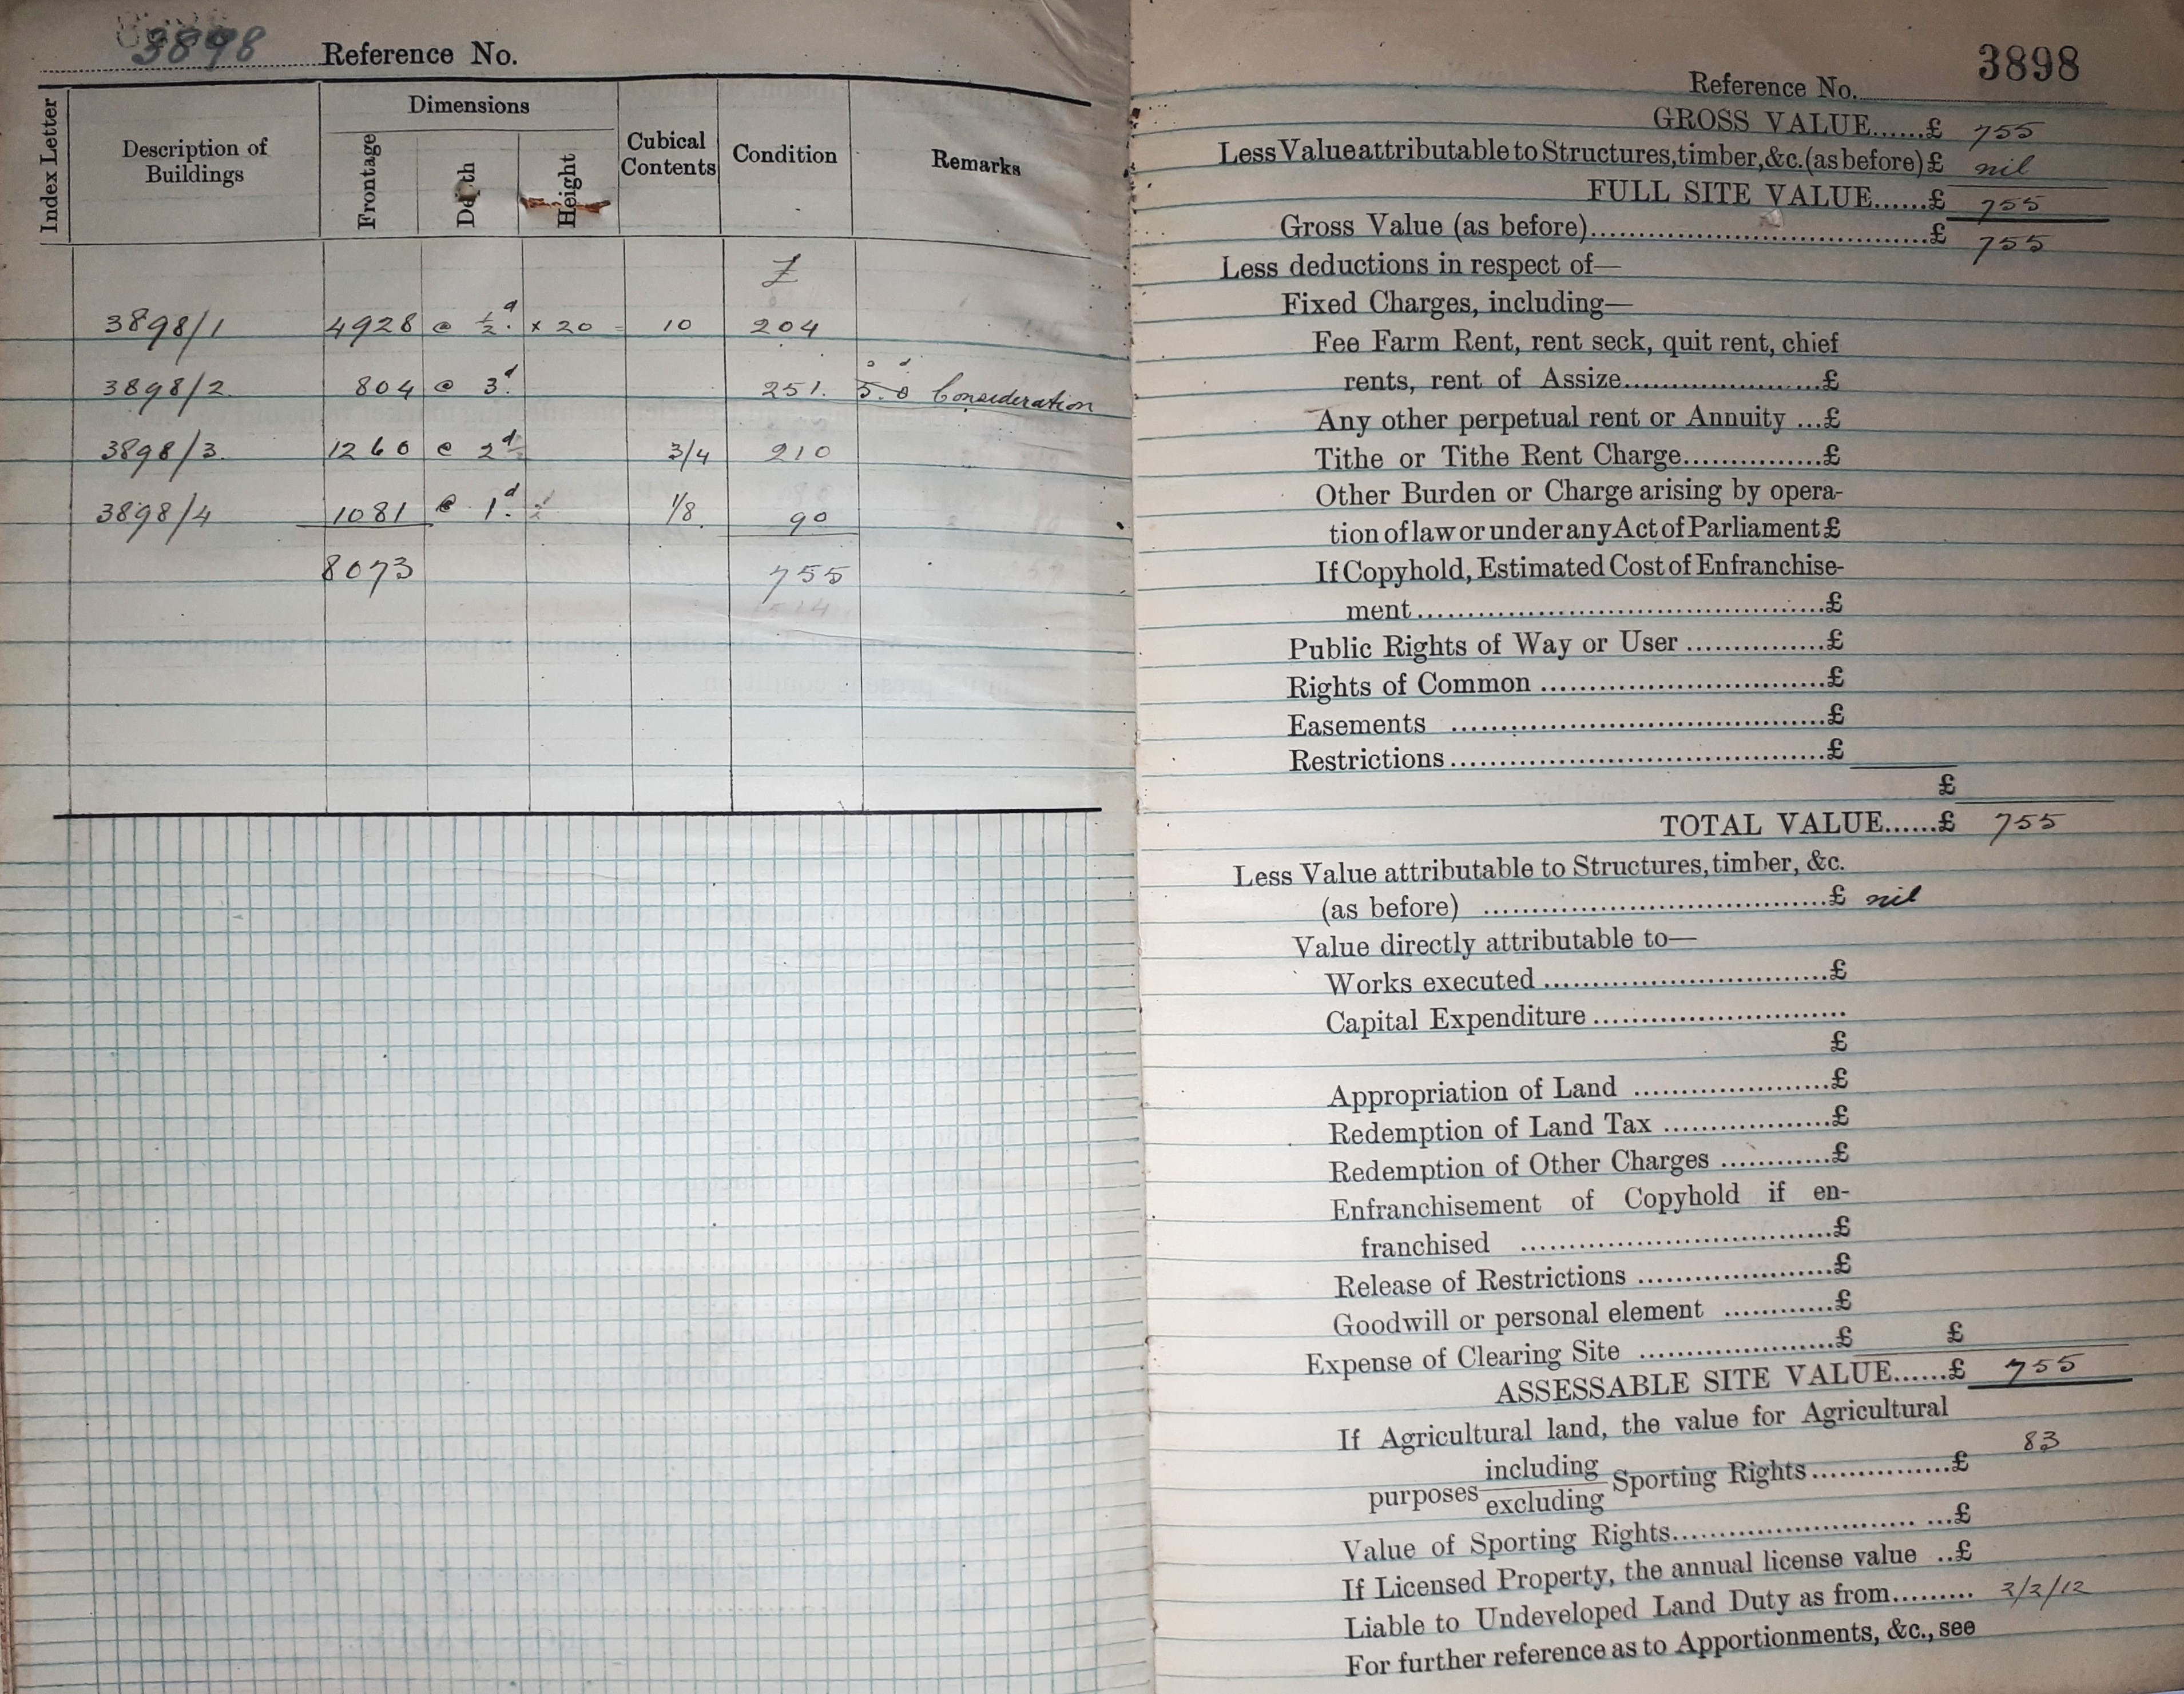 3898 Reference No.
Index Letter
Description of
Buildings
Dimensions
Frontage
Depth
Height
Cubical
Contents
Condition
Remarks
£
3898/1 4928 @ ½d. × 20 = 10 204
3898/2 804 @ 3d. 251. Consideration
3898/3. 1260 @ 2d 3/4 210
3898/4 1081 @ 1d. 1/8 90
8073 755
3898
Reference No.
GROSS VALUE......£ 755
Less Value attributable to Structures, timber, &c. (as before) £ nil
FULL SITE VALUE......£ 755
Gross Value (as before)..........£ 755
Less deductions in respect of—
Fixed Charges, including—
Fee Farm Rent, rent seck, quit rent, chief
rents, rent of Assize..........£
Any other perpetual rent or Annuity ...£
Tithe or Tithe Rent Charge..........£
Other Burden or Charge arising by opera-
tion of law or under any Act of Parliament £
If Copyhold, Estimated Cost of Enfranchise-
ment..........£
Public Rights of Way or User ..........£
Rights of Common ..........£
Easements ..........£
Restrictions ..........£
£
TOTAL VALUE......£ 755
Less Value attributable to Structures, timber, &c.
(as before) ..........£ nil
Value directly attributable to—
Works executed ..........£
Capital Expenditure ..........
£
Appropriation of Land ..........£
Redemption of Land Tax ..........£
Redemption of Other Charges ..........£
Enfranchisement of Copyhold if en-
franchised ..........£
Release of Restrictions ..........£
Goodwill or personal element ..........£
Expense of Clearing Site ..........£ £
ASSESSABLE SITE VALUE......£ 755
If Agricultural land, the value for Agricultural
purposes including
excluding Sporting Rights..........£ 83
Value of Sporting Rights..........£
If Licensed Property, the annual license value ..£
Liable to Undeveloped Land Duty as from......... 2/2/12
For further reference as to Apportionments, &c., see